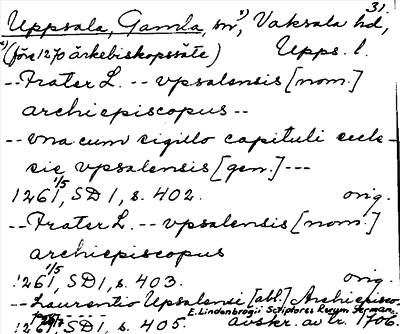 31.
Uppsala, Gamla, sn, x) Vaksala hd,
x) (före 1270 ärkebiskopssäte) Upps. l.
-- Frater L. -- vpsalensis [nom.]
archiepiscopus --
-- vna cum sigillo capituli eccle-
sie vpsalensis [gen.] ---
1261 1/5, SD 1, s. 402. orig.
-- Frater L. -- vpsalensis [nom.]
archiepiscopus
1261 1/5, SD 1, s. 403. orig.
-- Laurentio Upsalensi [abl.] Archiepisco-
po -----
E. Lindenbrogii Scriptores Rerum German.
SD 1, s. 405. avskr. av tr. 1706